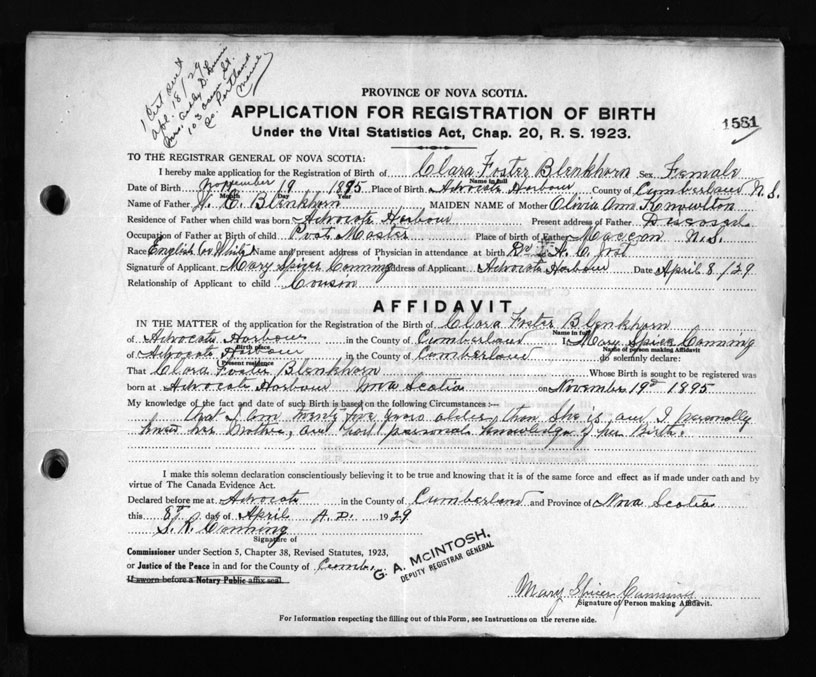 1 Cert sent
Apl. 18/29
Mrs. D.
103 St.
Portland
Maine
PROVINCE OF NOVA SCOTIA.
APPLICATION FOR REGISTRATION OF BIRTH
1581
Under the Vital Statistics Act, Chap. 20, R. S. 1923.
TO THE REGISTRAR GENERAL OF NOVA SCOTIA:
I hereby make application for the Registration of Birth of Clara Foster Blenkhorn Sex Female
Name in full
Date of Birth November 19 1895 Place of Birth Advocate Harbour County of Cumberland N.S.
Month Day Year
Name of Father Blenkhorn MAIDEN NAME of Mother Olivia Ann Knowlton
Residence of Father when child was born Advocate Harbour Present address of Father Deceased
Occupation of Father at Birth of child Post Master Place of birth of Father Maccan N.S.
Race English (or White) Name and present address of Physician in attendance at birth Dr A. C. Jost
Signature of Applicant Mary Spicer Conning Address of Applicant Advocate Harbour Date April 8/29
Relationship of Applicant to child Cousin
AFFIDAVIT
IN THE MATTER of the application for the Registration of the Birth of Clara Foster Blenkhorn
Name in full
of Advocate Harbour in the County of Cumberland I Mary Spicer Conning
Birth place Name of person making Affidavit
of Advocate Harbour in the County of Cumberland do solemnly declare:
Present residence
That Clara Foster Blenkhorn Whose Birth is sought to be registered was
born at Advocate Harbour Nova Scotia on November 19th 1895
My knowledge of the fact and date of such Birth is based on the following Circumstances:—
that I am twenty five years older than she is, and I personally
knew her Mother, and had personal knowledge of her Birth.
I make this solemn declaration conscientiously believing it to be true and knowing that it is of the same force and effect as if made under oath and by
virtue of The Canada Evidence Act.
Declared before me at Advocate in the County of Cumberland and Province of Nova Scotia
this 8th day of April A.D. 1929
S. R. Conning
Signature of
Commissioner under Section 5, Chapter 38, Revised Statutes, 1923,
or Justice of the Peace in and for the County of Cumb.
G. A. McINTOSH.
DEPUTY REGISTRAR GENERAL
If sworn before a Notary Public affix seal.
Mary Spicer Conning
Signature of Person making Affidavit.
For Information respecting the filling out of this Form, see Instructions on the reverse side.